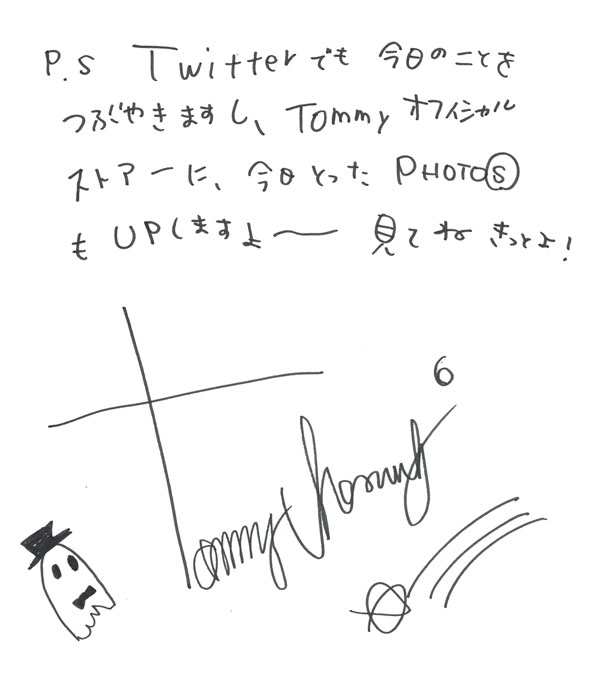 P.S Twitterでも 今日のことを
つぶやきますし、Tommy オフィシャル
ストアーに、今日とった PHOTOS
も UPしますよ〜 見てね きっとよ!
6
Tommy